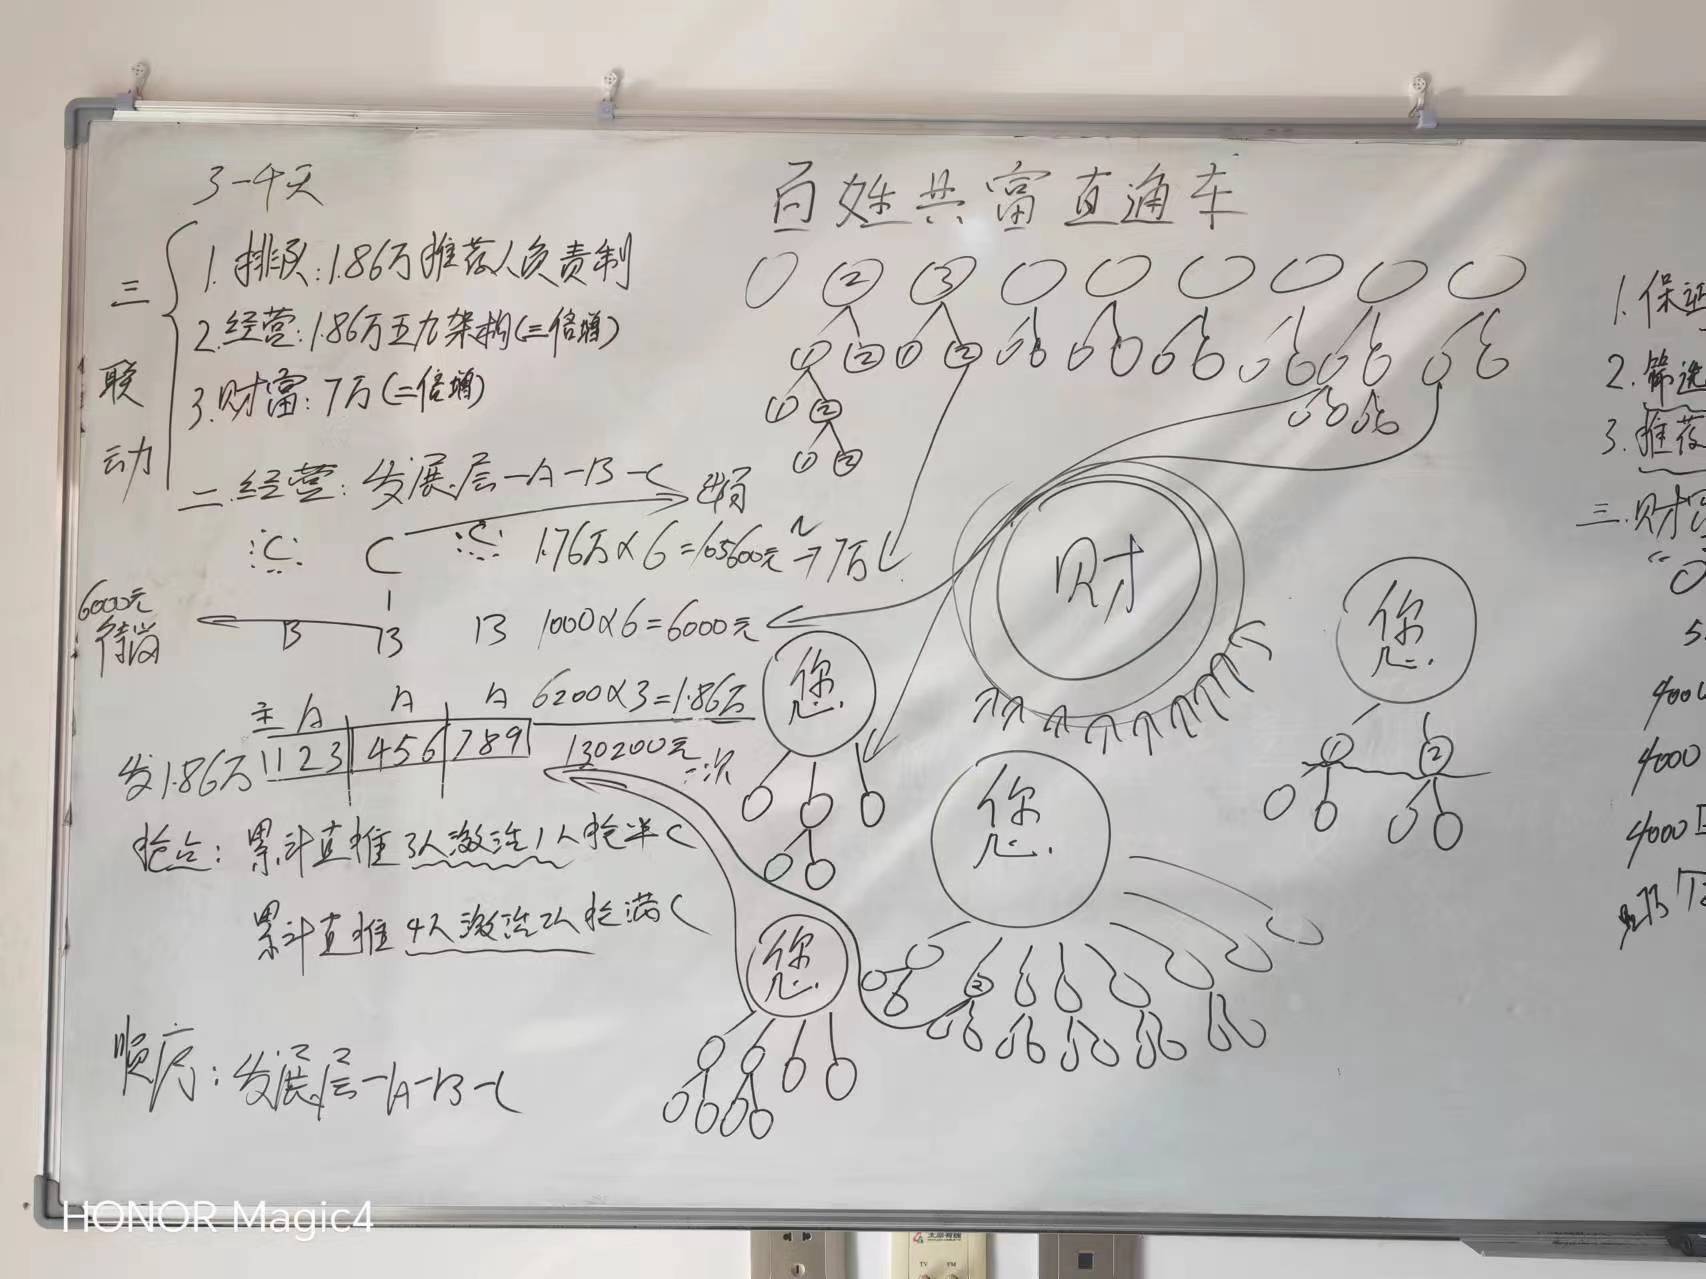 3-4天
百姓共富直通车
三联动
1.排队:1.86万推荐人负责制
2.经营:1.86万五九架构(三倍增)
3.财富:7万(二倍增)
② ③
① ② ① ②
① ②
① ②
二.经营:发展层-A-B-C
C C C 1.76万×6=105600元→7万
6000元
B B B 1000×6=6000元
主 A A A 6200×3=1.86万
发1.86万 1 2 3 4 5 6 7 8 9 130200元
二次
抢点:累计直推3人激活1人抢半C
累计直推4人激活2人抢满C
顺序:发展层-A-B-C
财
您
您
① ②
您
②
您
1.保证
2.筛选
3.推荐
三.财富
4000
4000
4000
HONOR Magic4
TV FM